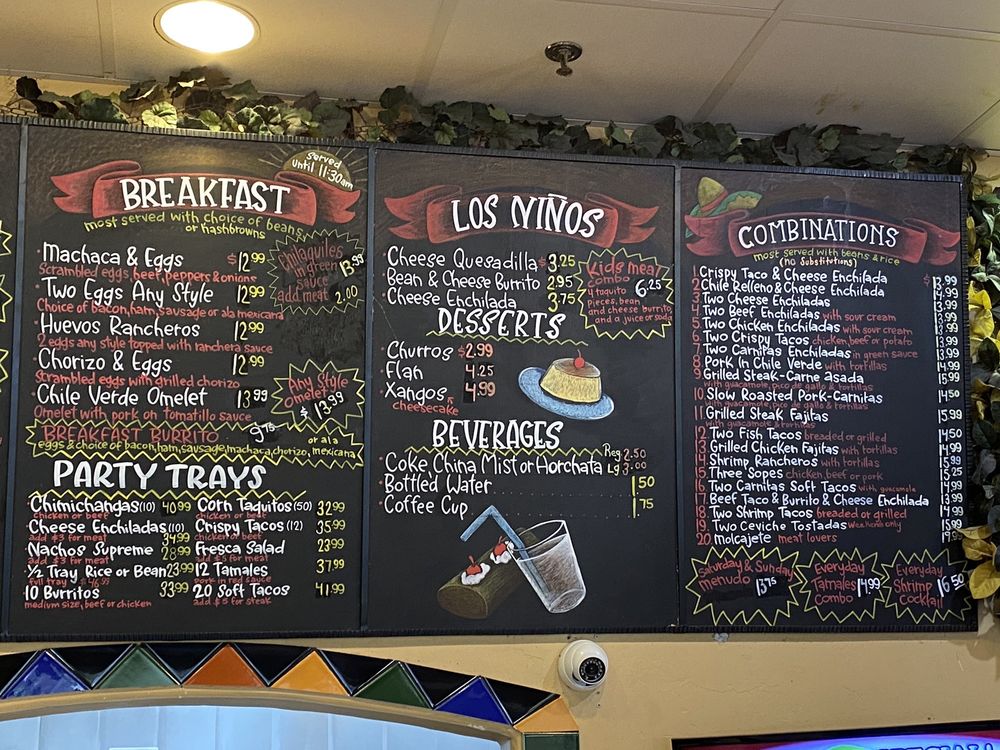 served
until 11:30am
BREAKFAST
most served with choice of beans
or hashbrowns
Machaca & Eggs $12.99
Scrambled eggs, beef, peppers & onions
Two Eggs Any Style 12.99
Choice of bacon, ham, sausage or ala mexicana
Huevos Rancheros 12.99
2 eggs any style topped with ranchera sauce
Chorizo & Eggs 12.99
Scrambled eggs with grilled chorizo
Chile Verde Omelet 13.99
Omelet with pork on tomatillo sauce
Chilaquiles
in green 13.99
sauce
add meat 2.00
Any Style
Omelet
$13.99
BREAKFAST BURRITO 9.75
eggs & choice of bacon, ham, sausage, machaca, chorizo, or ala mexicana
PARTY TRAYS
Chimichangas (10) 40.99
chicken or beef
Cheese Enchiladas (10) 34.99
add $3 for meat
Nachos Supreme 28.99
add $3 for meat
½ Tray Rice or Bean 23.99
full tray $46.55
10 Burritos 33.99
medium size, beef or chicken
Corn Taquitos (50) 32.99
chicken or beef
Crispy Tacos (12) 35.99
chicken or beef
Fresca Salad 23.99
add $5 for meat
12 Tamales 37.99
pork in red sauce
20 Soft Tacos 41.99
add $5 for steak
LOS NIÑOS
Cheese Quesadilla $3.25
Bean & Cheese Burrito 2.95
Cheese Enchilada 3.75
Kids meal
combo 6.25
4 taquito
pieces, bean
and cheese burrito,
and a juice or soda
DESSERTS
Churros $2.99
Flan 4.25
Xangos 4.99
cheesecake
BEVERAGES
Coke, China Mist or Horchata Reg 2.50
Lg 3.00
Bottled Water 1.50
Coffee Cup 1.75
COMBINATIONS
most served with beans & rice
(no Substitutions)
1. Crispy Taco & Cheese Enchilada $13.99
2. Chile Relleno & Cheese Enchilada 14.99
3. Two Cheese Enchiladas 13.99
4. Two Beef Enchiladas with sour cream 13.99
5. Two Chicken Enchiladas with sour cream 13.99
6. Two Crispy Tacos chicken, beef or potato 13.99
7. Two Carnitas Enchiladas in green sauce 13.99
8. Pork In Chile Verde with tortillas 14.99
9. Grilled Steak-Carne Asada 15.99
with guacamole, pico de gallo & tortillas
10. Slow Roasted Pork-Carnitas 14.50
with guacamole, pico de gallo & tortillas
11. Grilled Steak Fajitas 15.99
with guacamole & tortillas
12. Two Fish Tacos breaded or grilled 14.50
13. Grilled Chicken Fajitas with tortillas 14.99
14. Shrimp Rancheros with tortillas 15.99
15. Three Sopes chicken, beef or pork 15.25
16. Two Carnitas Soft Tacos with guacamole 14.99
17. Beef Taco & Burrito & Cheese Enchilada 13.99
18. Two Shrimp Tacos breaded or grilled 14.99
19. Two Ceviche Tostadas weekends only 15.99
20. molcajete meat lovers
Saturday & Sunday
menudo 13.75
Everyday
Tamales 14.99
Combo
Everyday
Shrimp 16.50
Cocktail